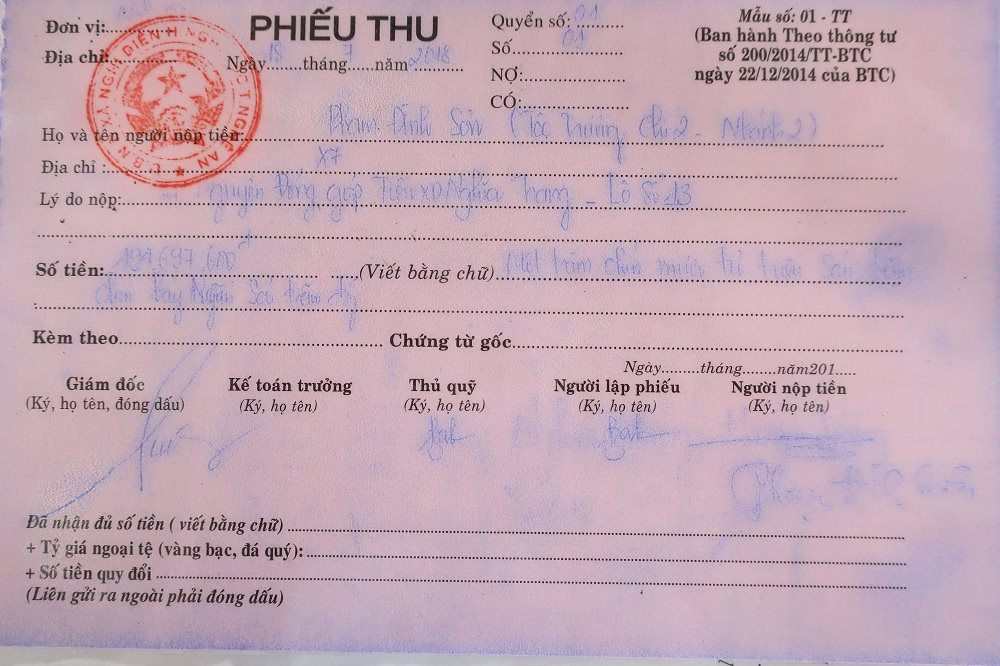 Đơn vị:
PHIẾU THU
Quyển số: 01
Mẫu số: 01 - TT
Địa chỉ:
Ngày 18 tháng 7 năm 2018
Số 01
(Ban hành Theo thông tư
số 200/2014/TT-BTC
NỢ:
ngày 22/12/2014 của BTC)
CÓ:
Họ và tên người nộp tiền: Phạm Đình Sơn (Tộc Trưởng chi 2 - Nhánh 2)
Địa chỉ : X7
Lý do nộp: nguyện Đóng góp Tiền XD Nghĩa Trang - Lô Số 13
Số tiền: (Viết bằng chữ) Một trăm chín mươi triệu Sáu trăm
chín bảy Ngàn Sáu trăm
Kèm theo Chứng từ gốc
Ngày tháng năm201
Giám đốc Kế toán trưởng Thủ quỹ Người lập phiếu Người nộp tiền
(Ký, họ tên, đóng dấu) (Ký, họ tên) (Ký, họ tên) (Ký, họ tên) (Ký, họ tên)
Phạm Đình Sơn
Đã nhận đủ số tiền ( viết bằng chữ)
+ Tỷ giá ngoại tệ (vàng bạc, đá quý):
+ Số tiền quy đổi
(Liên gửi ra ngoài phải đóng dấu)